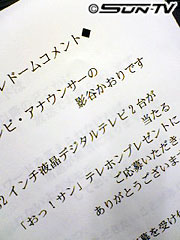 ©SUN-TV
ルドームコメント◆
レビ・アナウンサーの
影谷かおりです
2インチ液晶デジタルテレビ2台が
当たる
「おっ！サン」テレホンプレゼントに
ご応募いただき
ありがとうございま
募を受け